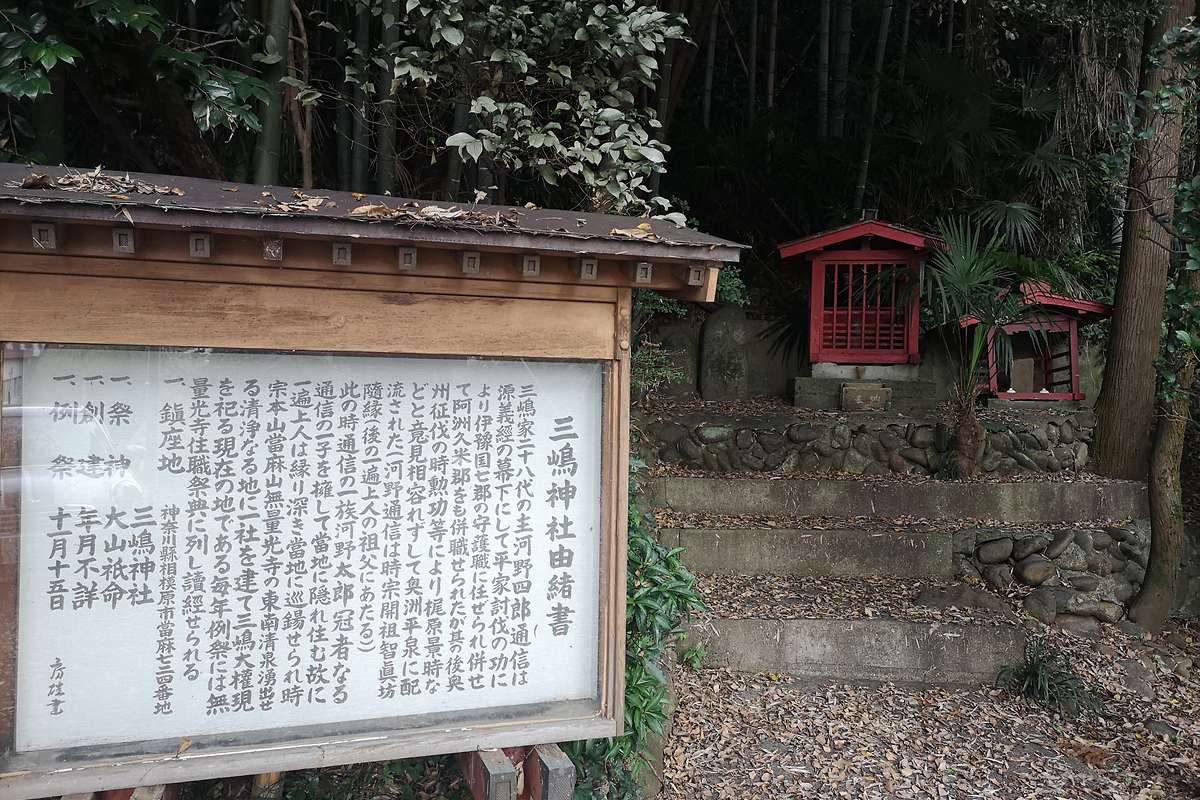 三嶋神社由緒書
三嶋家二十八代の主河野四郎通信は
源義經の幕下にして平家討伐の功に
より伊豫国七郡の守護職に任ぜられ併せ
て阿洲久米郡をも併職せられたが其の後奥
州征伐の時勲功等により梶原景時な
どと意見相容れずして奥洲平泉に配
流された(河野通信は時宗開祖智眞坊
隨縁(後の一遍上人の祖父にあたる)
此の時通信の一族河野太郎冠者なる
通信の一子を擁して当地に隠れ住む故に
一遍上人は縁り深き当地に巡錫せられ時
宗本山當麻山無量光寺の東南清泉湧出せ
る清浄なる地に一社を建て三嶋大権現
を祀る現在の地である毎年例祭には無
量光寺住職祭典に列し讀經せられる
一、鎮座地 神奈川縣相模原市當麻七二四番地
一、祭神 三嶋神社 大山祇命
一、創建 年月不詳
一、例祭 十一月十五日